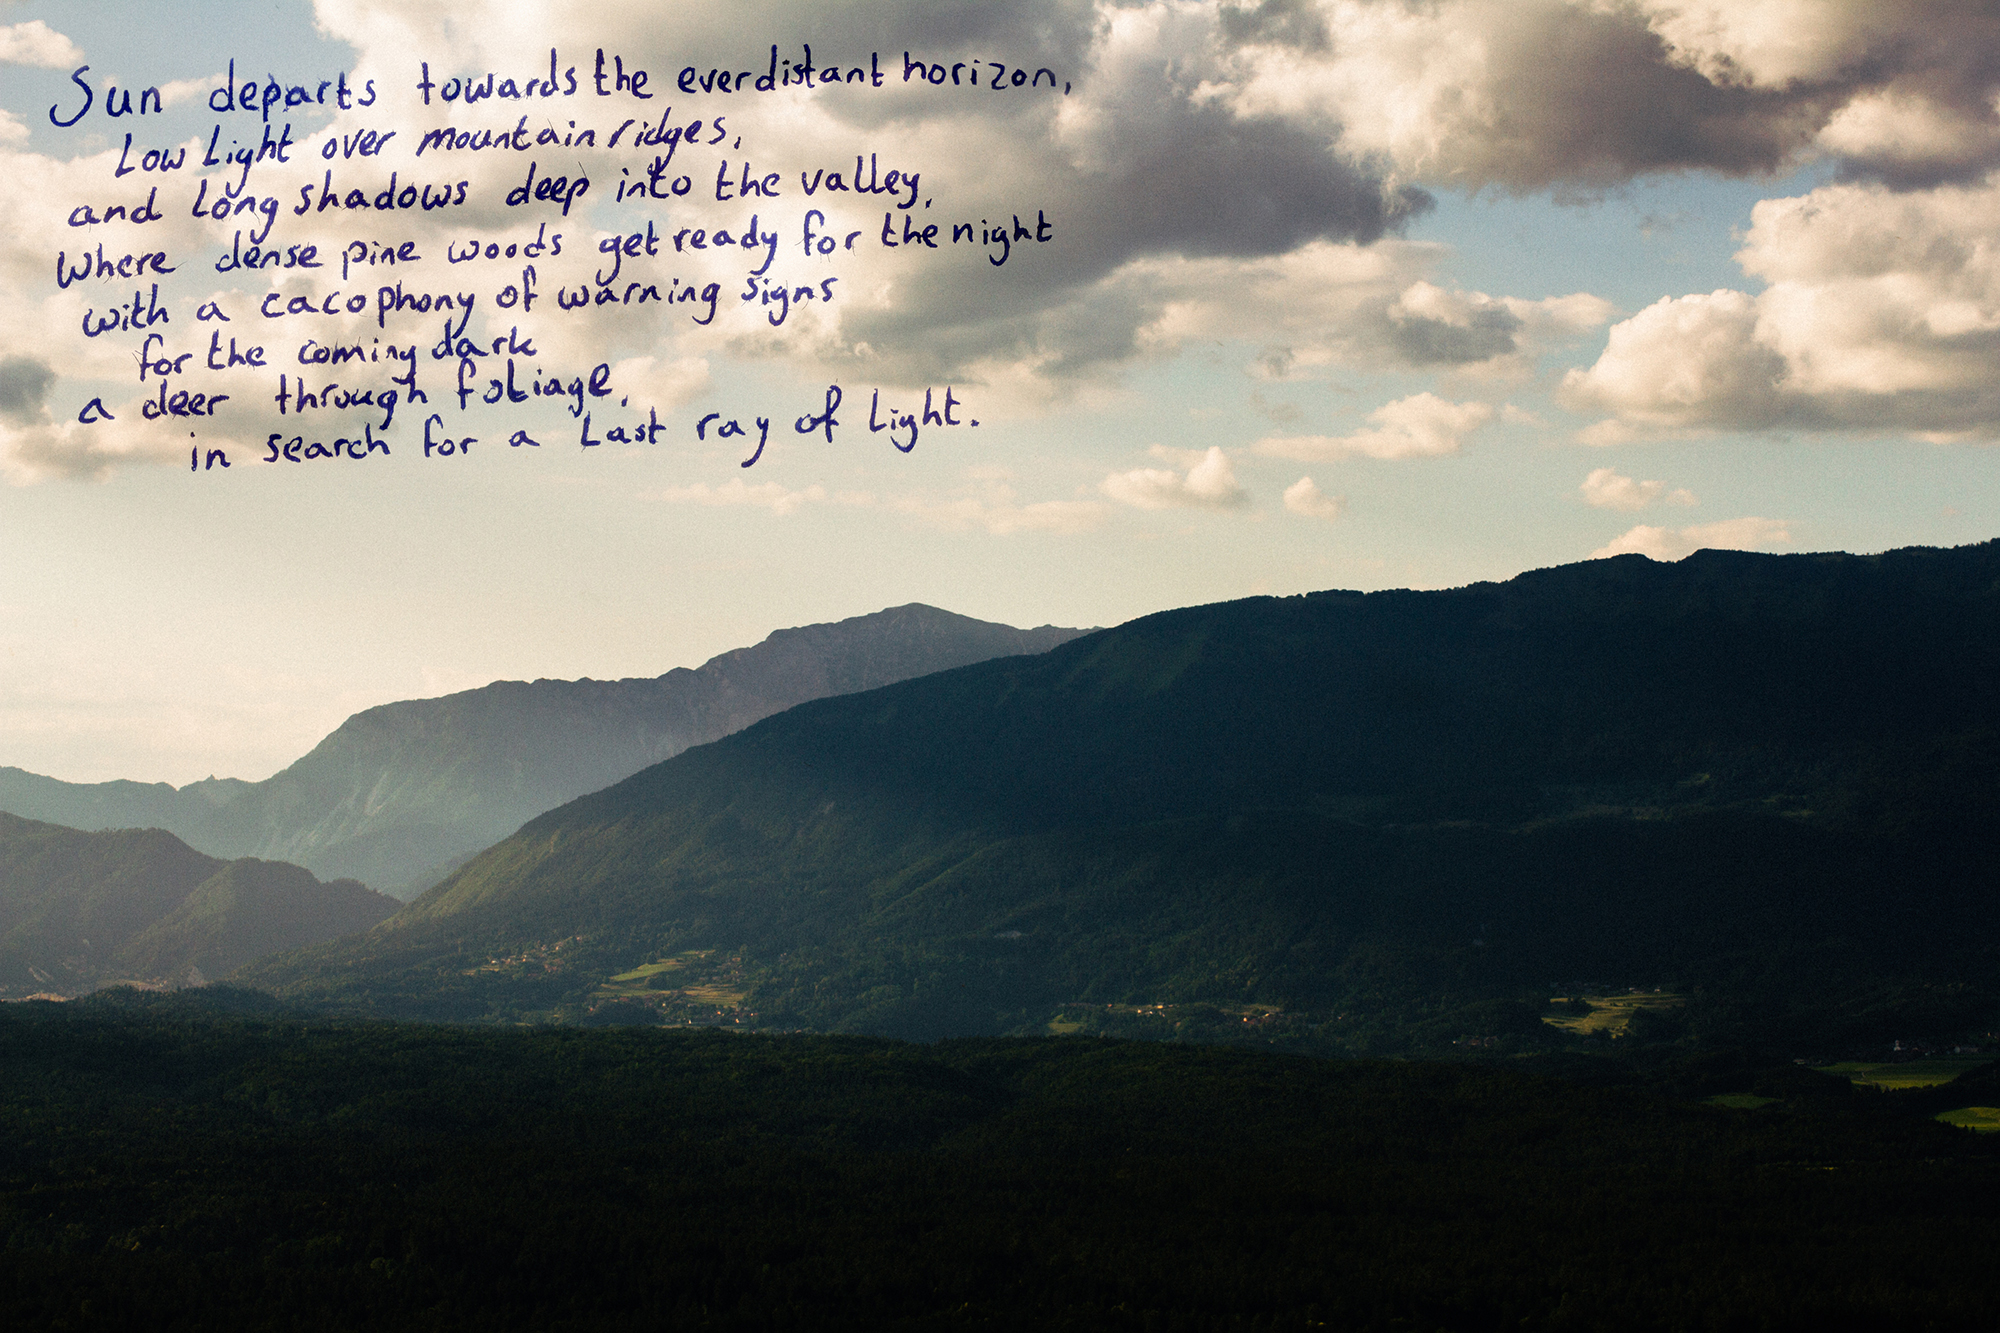 Sun departs towards the everdistant horizon,
Low Light over mountain ridges,
and long shadows deep into the valley,
Where dense pine woods get ready for the night
with a cacophony of warning signs
for the coming dark
a deer through foliage,
in search for a Last ray of Light.